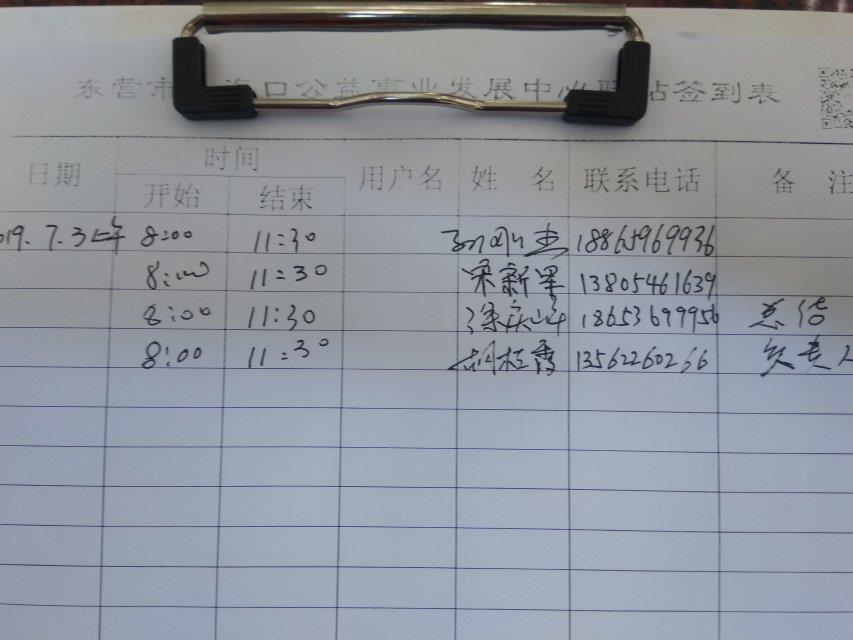 东营市 海口公益事业发展中心 站签到表
日期 时间 用户名 姓 名 联系电话 备 注
开始 结束
019.7.3上午 8:00 11:30 18865969936
8:00 11:30 梁新军 13805461639
8:00 11:30 庆峰 18653699956 总结
8:00 11:30 胡桂香 13562260266 负责人